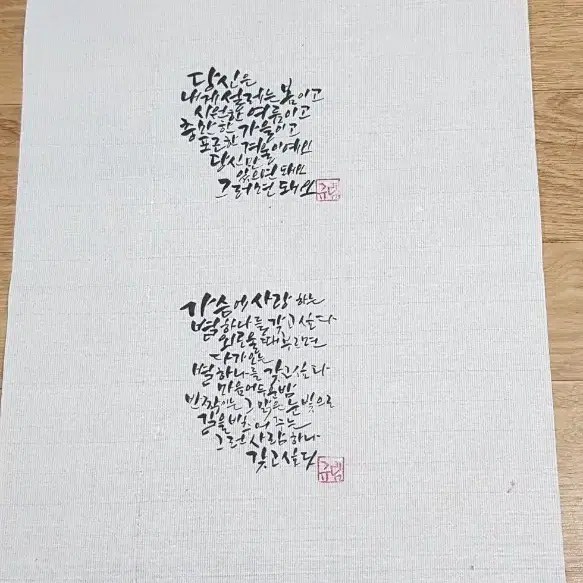 당신은
내게 설레는 봄이고
시원한 여름이고
충만한 가을이고
포근한 겨울이에요
당신만
있으면 돼요
그러면 돼요
가슴에 사랑하는
별 하나를 갖고 싶다
외로울 때 부르면
다가오는
별 하나를 갖고 싶다
마음 어두운 밤
반짝이는 그 맑은 눈빛으로
길을 비춰어 주는
그런 사람 하나
갖고 싶다